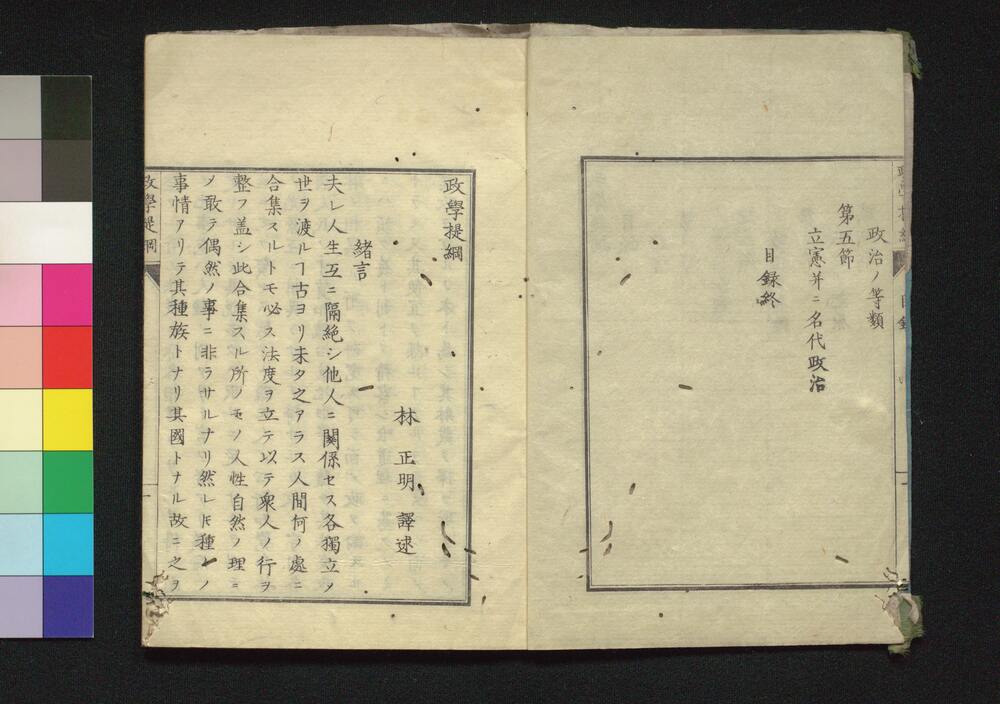 政治ノ等類
第五節
立憲并ニ名代政治
目録終
政學提綱
林 正明 譯述
緒言
夫レ人生互ニ隔絶シ他人ニ關係セス各獨立ノ
世ヲ渡ルヿ古ヨリ未タ之アラス人間何ノ處ニ
合集スルトモ必ス法度ヲ立テ以テ衆人ノ行ヲ
整フ盖シ此合集スル所ノモノ人性自然ノ理ニ
ノ敢テ偶然ノ事ニ非ラサルナリ然レ𪜈種トノ
事情アリテ其種族トナリ其國トナル故ニ之ヲ
政學提綱